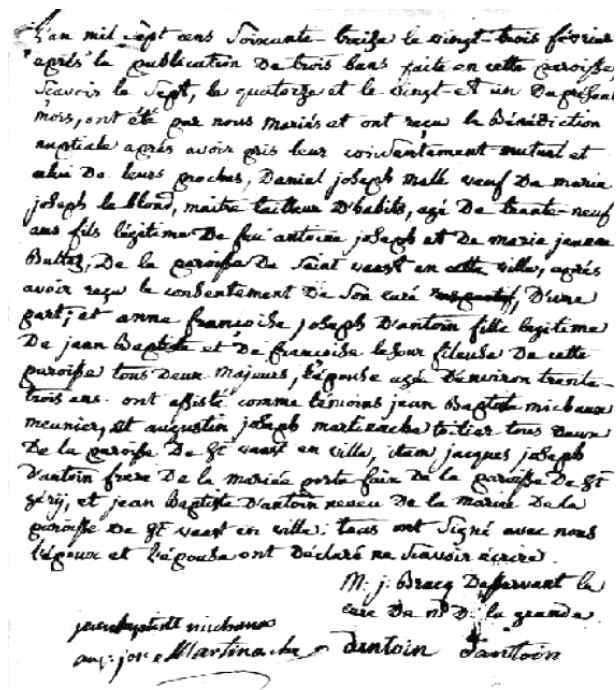 L'an mil sept cens soixante-treize le vingt-trois février
après la publication de trois bans faite en cette paroisse,
scavoir le sept, le quatorze et le vingt-et un du présent
mois, ont été par nous mariés et ont reçu la Bénédiction
nuptiale après avoir pris leur consentement mutuel et
celui de leurs proches, Daniel joseph malle veuf de marie
joseph le blond, maitre tailleur d'habits, agé de trente-neuf
ans fils légitime de feu antoine joseph et de marie jeanne
De la paroisse de saint vaast en cette ville, après
avoir reçu le consentement de son curé d'une
part; et anne françoise joseph d'antoin fille legitime
de jean Baptiste et de françoise lesour fileuse de cette
paroisse tous deux majeurs, l'épouse agée d'environ trente-
trois ans. ont assisté comme témoins jean Baptiste michaux
meunier, et augustin joseph martinache tous deux
De la paroisse de St vaast en ville, item jacques joseph
d'antoin frere de la mariée porte faix de la paroisse de St
géry, et jean Baptiste d'antoin neveu de la mariée de la
paroisse de St vaast en ville: tous ont signé avec nous
l'époux et l'épouse ont déclaré ne scavoir écrire.
M. j. Bracq Desservant la
cure de n. D. la grande
jean baptiste michaux
aug. jose Martinache dantoin Dantoin